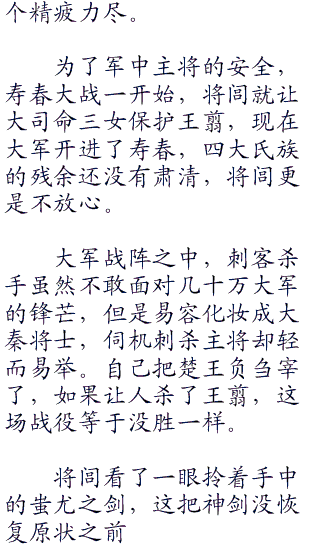 个精疲力尽。
为了军中主将的安全，
寿春大战一开始，将闾就让
大司命三女保护王翦，现在
大军开进了寿春，四大氏族
的残余还没有肃清，将闾更
是不放心。
大军战阵之中，刺客杀
手虽然不敢面对几十万大军
的锋芒，但是易容化妆成大
秦将士，伺机刺杀主将却轻
而易举。自己把楚王负刍宰
了，如果让人杀了王翦，这
场战役等于没胜一样。
将闾看了一眼拎着手中
的蚩尤之剑，这把神剑没恢
复原状之前